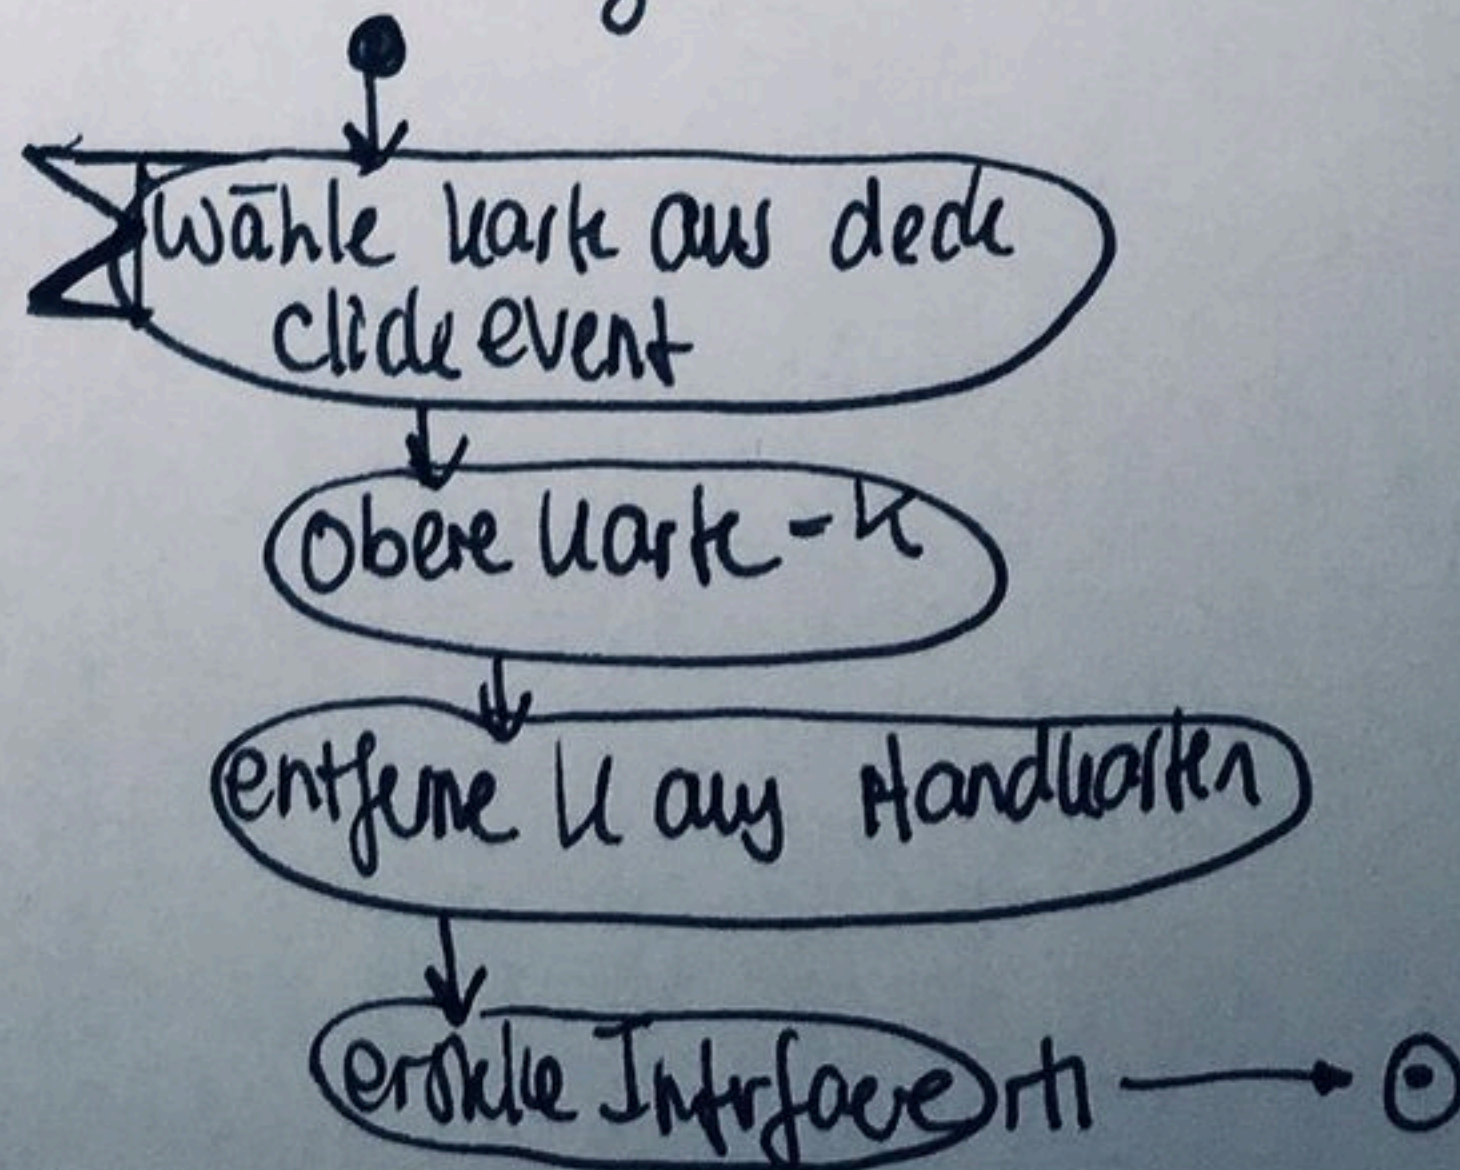 Wähle Karte aus deck
click event
Obere Karte - K
entferne K aus Handkarten
erstelle Interface